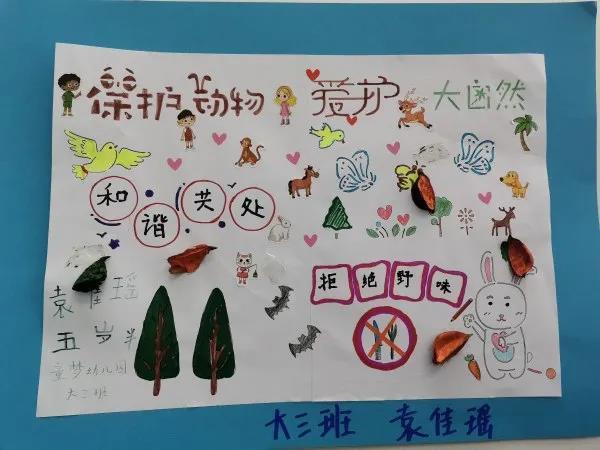 保护动物 爱护大自然
和谐共处
拒绝野味
袁佳瑶
五岁半
童梦幼儿园
大三班
大三班 袁佳瑶